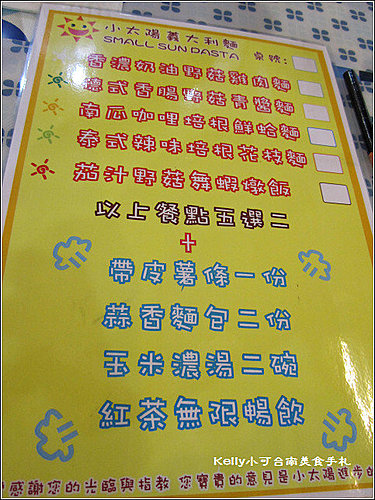 小太陽義大利麵
SMALL SUN PASTA
桌號:
香濃奶油野菇雞肉麵
德式香腸野菇青醬麵
南瓜咖哩培根鮮蛤麵
泰式辣味培根花枝麵
茄汁野菇舞蝦燉飯
以上餐點五選二
+
帶皮薯條一份
蒜香麵包二份
玉米濃湯二碗
紅茶無限暢飲
Kelly小可台南美食手札
感謝您的光臨與指教 您寶貴的意見是小太陽進步的